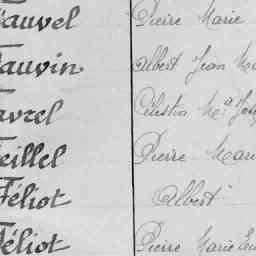 Fauvel Pierre Marie
Fauvin Albert Jean
Favrel Célestin Mᵃ
Feillel Pierre Mari
Féliot Albert
Féliot Pierre Marie